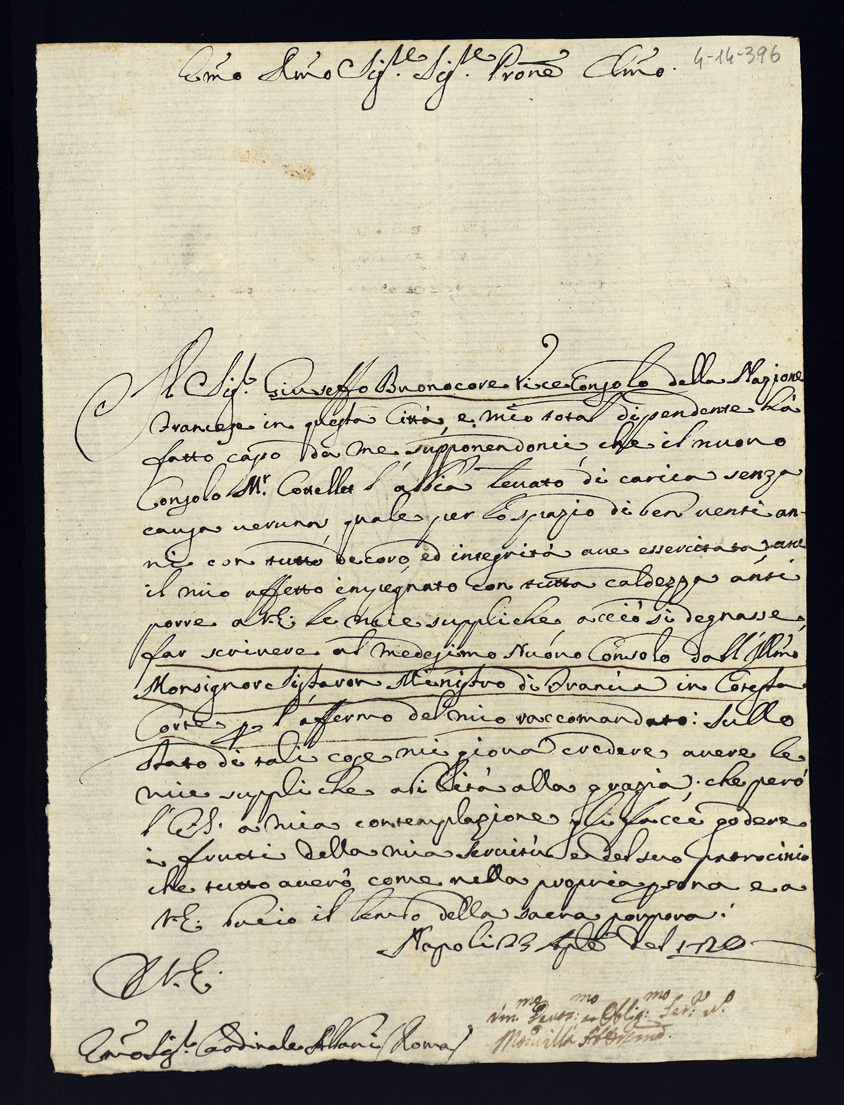 Em̃o Rm̃o Sig.re Sig.re Prone Clm̃o.
4-14-396
Il Sig.r Giuseffo Buonocore Vice Consolo della Nazione
Francese in questa Città, e mio total dipendente hà
fatto capo da me supponendomi, che il nuovo
Consolo M.r l'abbia levato di carica senza
causa veruna quale per lo spazio di ben venti an-
ni con tutto decoro, ed integrità ave essercitata;
il mio affetto impegnato con tutta caldezza
porre a V.E. le mie suppliche acciò si degnasse,
far scrivere al medesimo Nuovo Consolo dall' Illm̃o
Monsignor Ministro di Francia in Cotesta
Corte p l'affermo del mio raccomandato: sullo
stato di tali cose mi giova credere avere le
mie suppliche abilità alla grazia; che però
l'E.S. a mia contemplazione gli facci godere
i frutti della mia servitù e del suo patrocinio
che tutto averò come nella propria e a
V.E. bacio il lembo della sacra porpora.
Napoli 23 del 1720
D V.E.
Em̃o Sig.r Cardinale Albani (Roma)
mo mo mo
Devot: ed Oblig: Ser: v.o